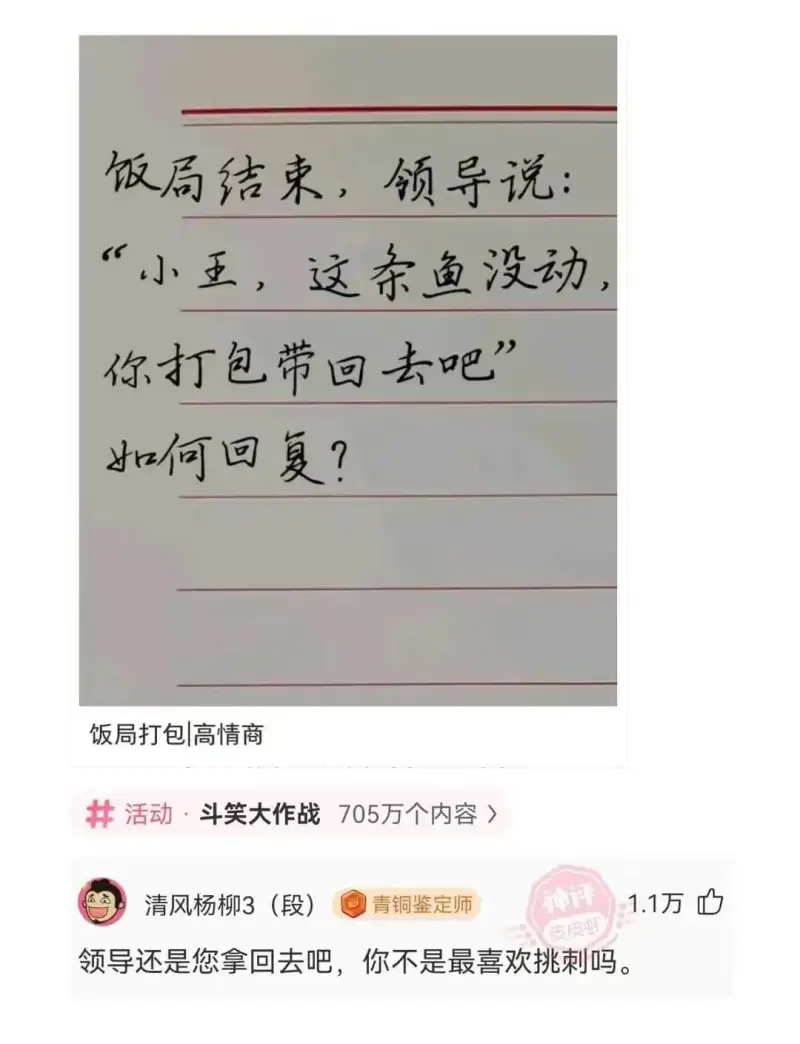 饭局结束，领导说：
“小王，这条鱼没动，
你打包带回去吧”
如何回复？
饭局打包|高情商
# 活动 · 斗笑大作战 705万个内容 >
清风杨柳3（段） 青铜鉴定师 神评 皮皮虾 1.1万
领导还是您拿回去吧，你不是最喜欢挑刺吗。